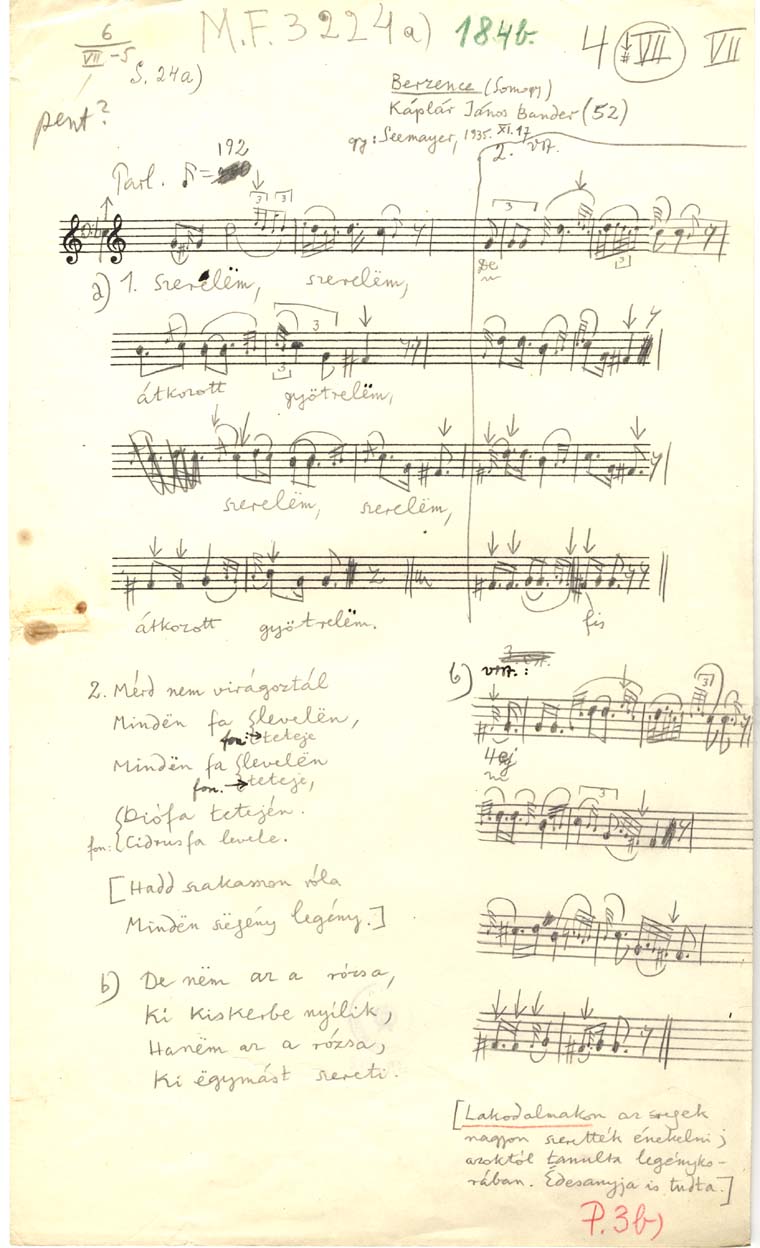 M.F. 3224a) 184b.
6
VII -5
S. 24a)
4 VII VII
pent?
Berzence (Somogy)
Káplár János Bander (52)
gy: Seemayer, 1935. XI. 17
2. vsz.
Parl. = 192
a) 1. Szerelëm, szerelëm,
De
átkozott gyötrelëm,
szerelëm, szerelëm,
átkozott gyötrelëm.
fis
2. Mérd nem virágoztál
Mindën fa levelën,
fon: teteje
Mindën fa levelën
fon. teteje,
Diófa tetején.
fon: Cidrusfa levele.
[Hadd szakasszon róla
Mindën szëgény legény.]
b) De nëm az a rózsa,
Ki kiskerbe nyílik,
Hanëm az a rózsa,
Ki ëgymást szereti.
b)
vsz.:
[Lakodalmakon az öregek
nagyon szerették énekelni;
azoktól tanulta legényko-
rában. Édesanyja is tudta.]
P. 3b)